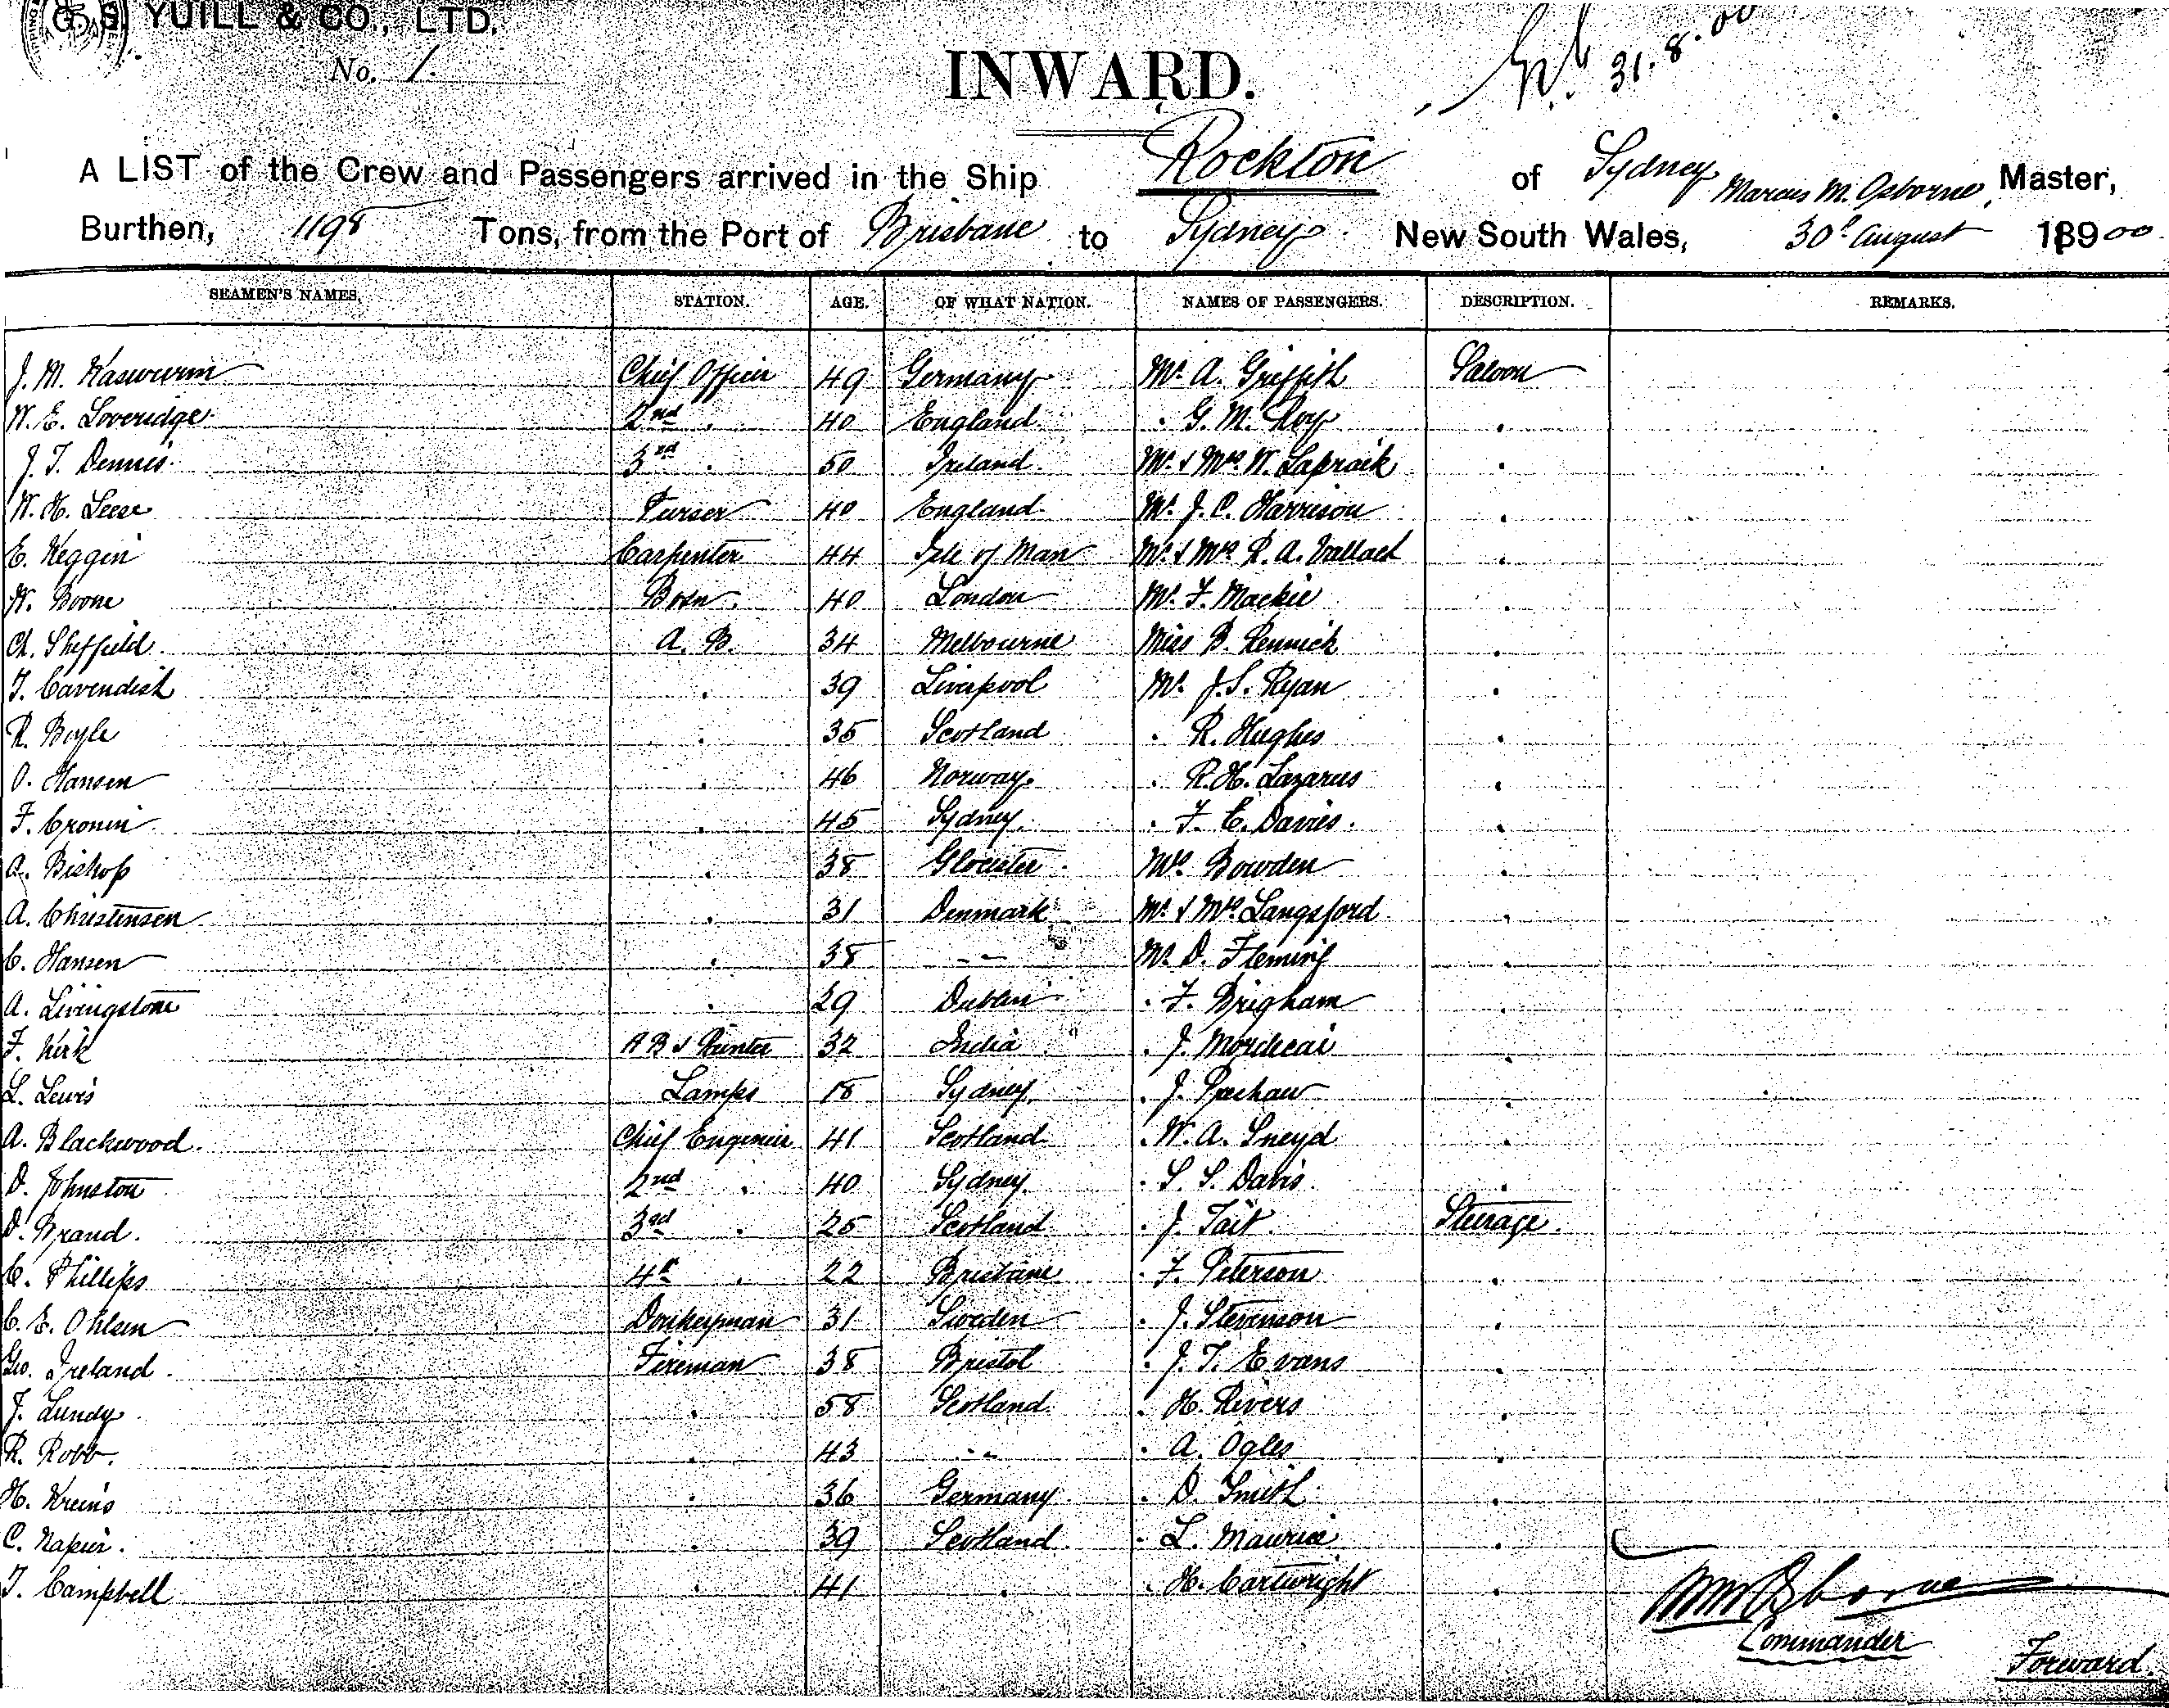 G. S. YUILL & CO., LTD.
No. 1.
INWARD.
31.8.00
A LIST of the Crew and Passengers arrived in the Ship Rockton of Sydney Marcus M. Osborne, Master,
Burthen, 1198 Tons, from the Port of Brisbane to Sydney New South Wales, 30th August 18900
SEAMEN'S NAMES. STATION. AGE. OF WHAT NATION. NAMES OF PASSENGERS. DESCRIPTION. REMARKS.
J. M. Kaswurm Chief Officer 49 Germany Mr. A. Griffith Saloon
W. E. Loveridge 2nd " 40 England " G. M. Roy "
J. T. Dennis 3rd " 50 Ireland Mr. & Mrs. W. Lapraik "
W. H. Leese Purser 40 England Mr. J. C. Harrison "
E. Keggin Carpenter 44 Isle of Man Mr. & Mrs. R. A. Vallack "
W. Boone Bosn. 40 London Mr. F. Mackie "
Ch. Sheffield A. B. 34 Melbourne Miss B. Rennick "
T. Cavendish " 39 Liverpool Mr. J. S. Ryan "
R. Boyle " 35 Scotland " R. Hughes "
O. Hansen " 46 Norway " R. H. Lazarus "
F. Cronin " 45 Sydney " F. E. Davies "
A. Bishop " 38 Glocester Mrs. Bowden "
A. Christensen " 31 Denmark Mr. & Mrs. Langsford "
C. Hansen " 38 " " Mr. D. Fleming "
A. Livingstone " 29 Dublin " F. Brigham "
F. Kirk A B & Printer 32 India " J. Mordecai "
L. Lewis Lamps 18 Sydney " J. "
A. Blackwood Chief Engineer 41 Scotland " W. A. Sneyd "
D. Johnston 2nd " 40 Sydney " S. S. Davis "
D. Brand 3rd " 25 Scotland " J. Tait Steerage
C. Phillips 4th " 22 Brisbane " F. Peterson "
C. E. Ohlsen Donkeyman 31 Sweden " J. Stevenson "
Geo. Ireland Fireman 38 Bristol " J. T. Evans "
J. Lundy " 58 Scotland " H. Rivers "
R. Robb " 43 " " " A. Ogles "
H. Kreins " 36 Germany " D. Smith "
C. Napier " 39 Scotland " L. Maurice "
T. Campbell " 41 " " H. Cartwright "
MM Osborne
Commander
Forward.